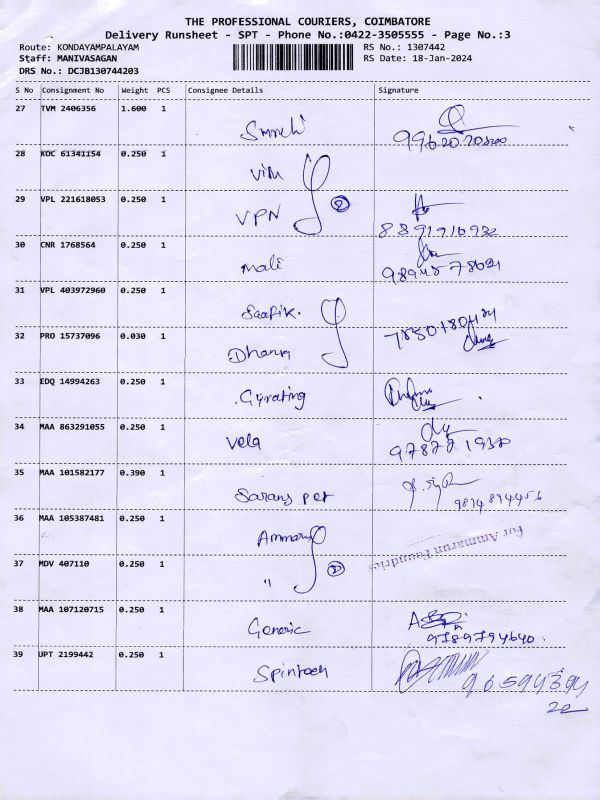 THE PROFESSIONAL COURIERS, COIMBATORE
Delivery Runsheet - SPT - Phone No.:0422-3505555 - Page No.:3
Route: KONDAYAMPALAYAM RS No.: 1307442
Staff: MANIVASAGAN RS Date: 18-Jan-2024
DRS No.: DCJB130744203
S No Consignment No Weight PCS Consignee Details Signature
27 TVM 2406356 1.600 1
28 KOC 61341154 0.250 1
Vim
29 VPL 221618053 0.250 1
VPN 2
8891916932
30 CNR 1768564 0.250 1
mali
31 VPL 403972960 0.250 1
Saafik.
32 PRO 15737096 0.030 1
33 EDQ 14994263 0.250 1
Gyrating
34 MAA 863291055 0.250 1
Vela
35 MAA 101582177 0.390 1
Sarang pet
9814894456
36 MAA 105387481 0.250 1
for Ammarun Foundries
37 MDV 407110 0.250 1
" 2
38 MAA 107120715 0.250 1
Generic
9789794640.
39 UPT 2199442 0.250 1
Spintech